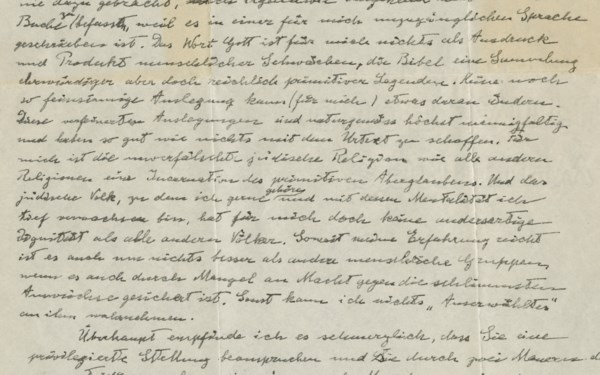 nie dazu gebracht,
Buche befasst, weil es in einer für mich unzugänglichen Sprache
geschrieben ist. Das Wort Gott ist für mich nichts als Ausdruck
und Produkt menschlicher Schwächen, die Bibel eine Sammlung
ehrwürdiger aber doch reichlich primitiver Legenden. Keine noch
so feinsinnige Auslegung kann (für mich) etwas daran ändern.
Diese verfeinerten Auslegungen sind naturgemäss höchst mannigfaltig
und haben so gut wie nichts mit dem Urtext zu schaffen. Für
mich ist die unverfälschte jüdische Religion wie alle anderen
Religionen eine Incarnation des primitiven Aberglaubens. Und das
jüdische Volk, zu dem ich gerne gehöre und mit dessen Mentalität ich
tief verwachsen bin, hat für mich doch keine andersartige
Dignität als alle anderen Völker. Soweit meine Erfahrung reicht
ist es auch um nichts besser als andere menschliche Gruppen,
wenn es auch durch Mangel an Macht gegen die schlimmsten
Auswüchse gesichert ist. Sonst kann ich nichts „Auserwähltes"
an ihm wahrnehmen.
Überhaupt empfinde ich es schmerzlich, dass Sie eine
privilegierte Stellung beanspruchen und Sie durch zwei Mauern